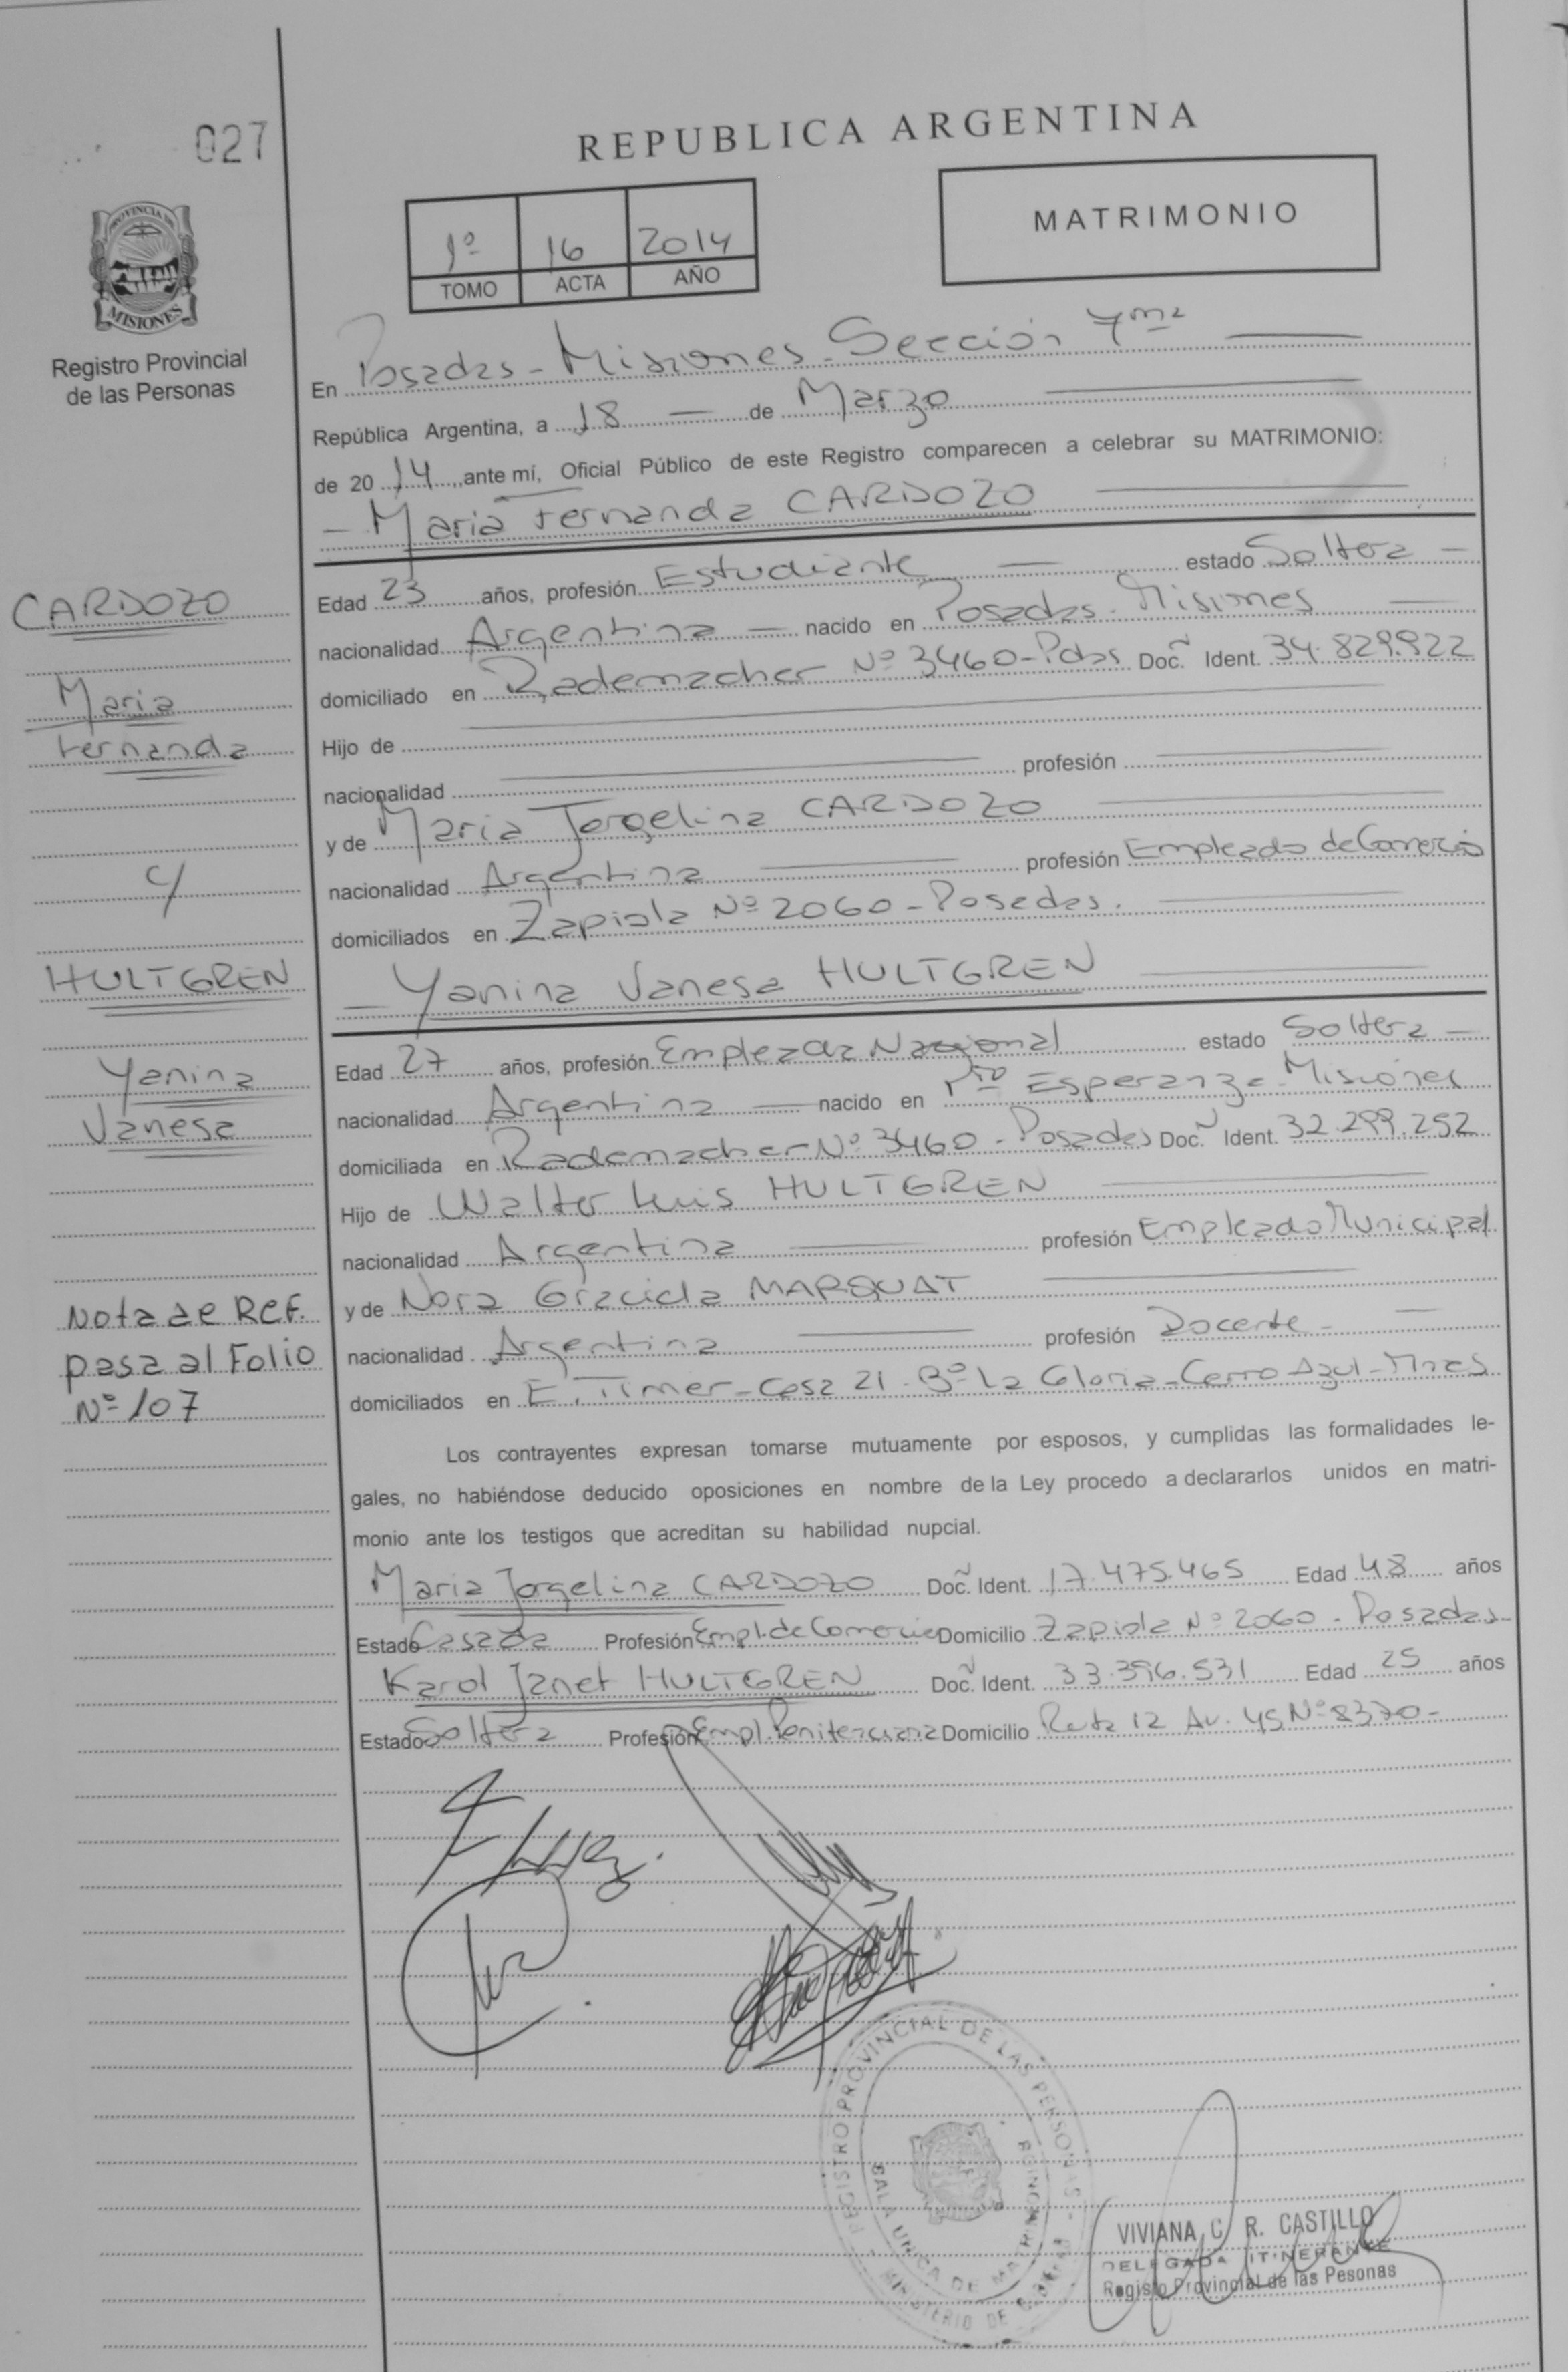 027
REPUBLICA ARGENTINA
PROVINCIA DE
MISIONES
Registro Provincial
de las Personas
1º 16 2014
TOMO ACTA AÑO
MATRIMONIO
En Posadas - Misiones - Sección 7ma
República Argentina, a 18 de Marzo
de 20 14 ante mí, Oficial Público de este Registro comparecen a celebrar su MATRIMONIO:
- Maria Fernanda CARDOZO
Edad 23 años, profesión Estudiante estado Soltera -
nacionalidad Argentina - nacido en Posadas - Misiones
domiciliado en Rademacher Nº 3460 - Pdas Doc. Ident. 34.829.922
Hijo de
nacionalidad profesión
y de Maria Jorgelina CARDOZO
nacionalidad Argentina profesión Empleado de Comercio
domiciliados en Zapiola Nº 2060 - Posadas.
- Yanina Vanesa HULTGREN
Edad 27 años, profesión Empleada Nacional estado Soltera -
nacionalidad Argentina - nacido en Pto Esperanza - Misiones
domiciliada en Rademacher Nº 3460 - Posadas Doc. Ident. 32.299.252
Hijo de Walter Luis HULTGREN
nacionalidad Argentina profesión Empleado Municipal
y de Nora Graciela MARQUAT
nacionalidad Argentina profesión Docente -
domiciliados en E. Timer - Casa 21 - Bº La Gloria - Cerro Azul - Mnes
Los contrayentes expresan tomarse mutuamente por esposos, y cumplidas las formalidades le-
gales, no habiéndose deducido oposiciones en nombre de la Ley procedo a declararlos unidos en matri-
monio ante los testigos que acreditan su habilidad nupcial.
Maria Jorgelina CARDOZO Doc. Ident. 17.475.465 Edad 48 años
Estado Casada Profesión Empl. de Comercio Domicilio Zapiola Nº 2060 - Posadas
Karol Janet HULTGREN Doc. Ident. 33.396.531 Edad 25 años
Estado Soltera Profesión Empl. Penitenciaria Domicilio Ruta 12 Av. 45 Nº 8370 -
CARDOZO
Maria
Fernanda
c/
HULTGREN
Yanina
Vanesa
Nota de Ref.
pasa al Folio
Nº 107
REGISTRO PROVINCIAL DE LAS PERSONAS
SALA UNICA DE MATRIMONIO
MINISTERIO DE
VIVIANA C. R. CASTILLO
DELEGADA ITINERANTE
Registo Provincial de las Pesonas